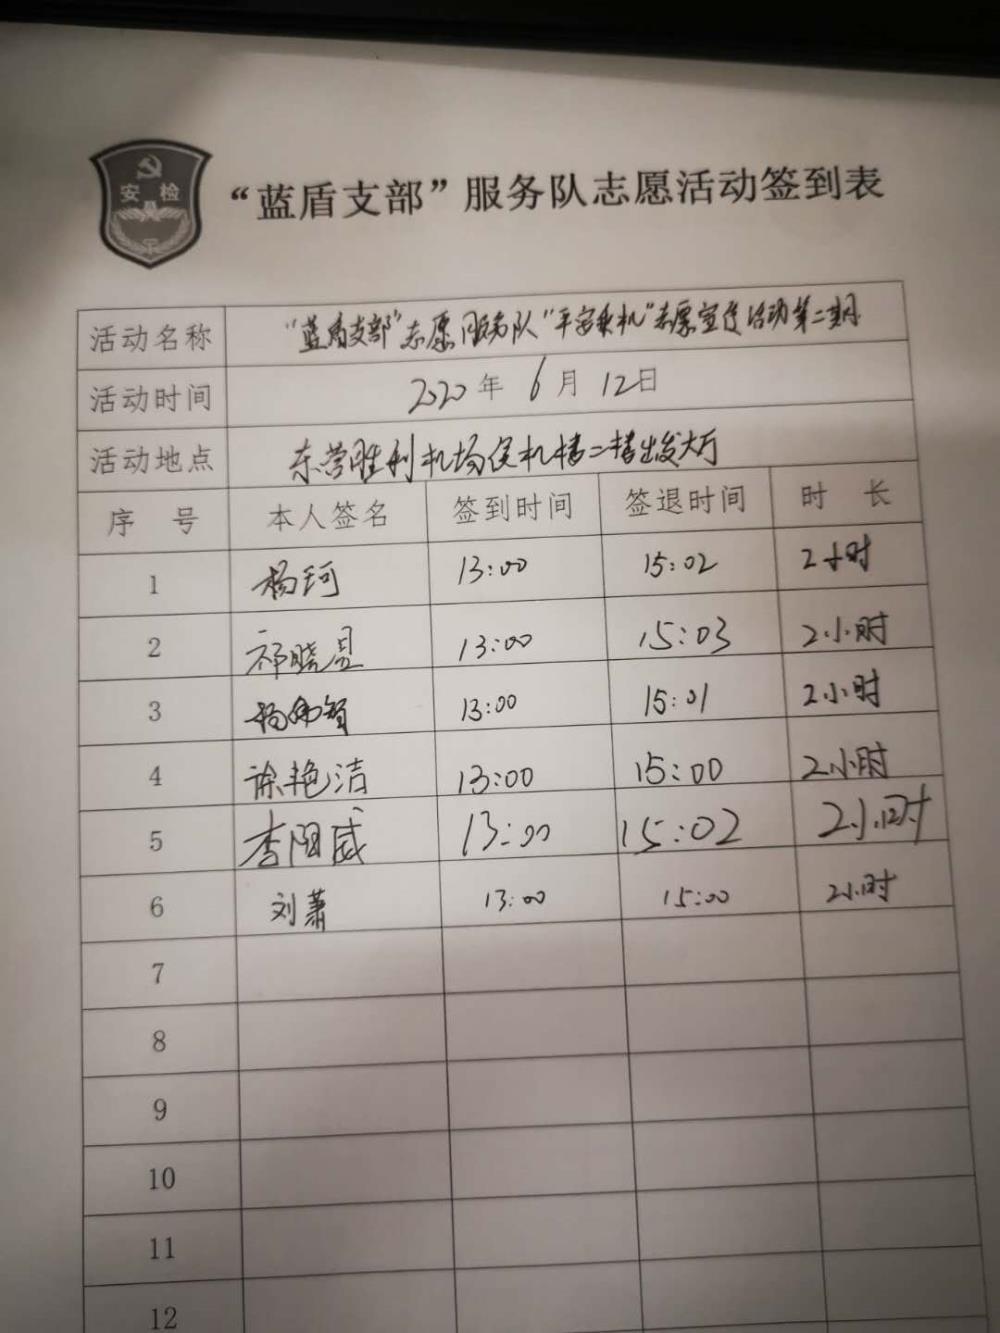 安检
“蓝盾支部”服务队志愿活动签到表
活动名称 “蓝盾支部”志愿服务队“平安乘机”志愿宣传活动第二期
活动时间 2020年 6月 12日
活动地点 东营胜利机场候机楼二楼出发大厅
序 号 本人签名 签到时间 签退时间 时 长
1 杨珂 13:00 15:02 2小时
2 祁晓昱 13:00 15:03 2小时
3 杨 13:00 15:01 2小时
4 徐艳洁 13:00 15:00 2小时
5 李阳威 13:00 15:02 2小时
6 刘萧 13:00 15:00 2小时
7
8
9
10
11
12